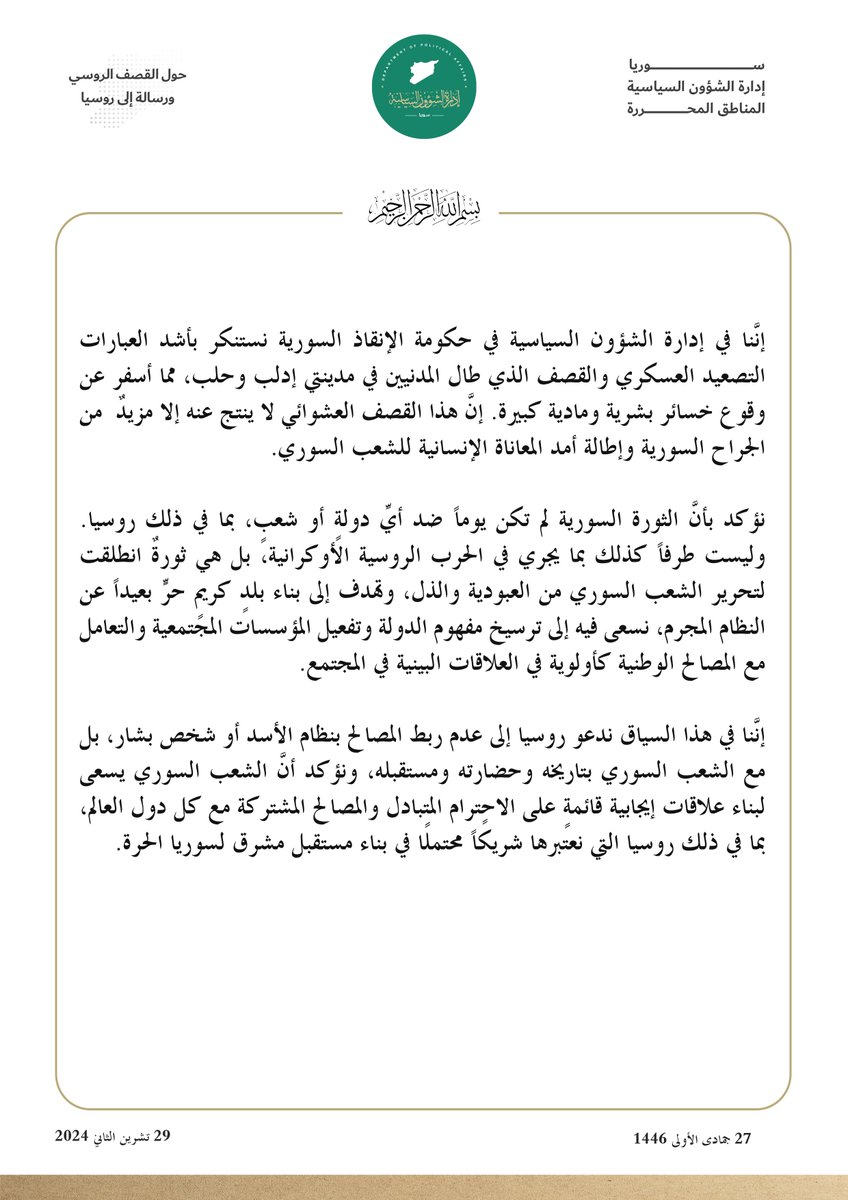 ســـــــــــوريا
إدارة الشؤون السياسية
المناطق المحـــــررة
DEPARTMENT OF POLITICAL AFFAIRS
إدارة الشؤون السياسية
سوريا
حول القصف الروسي
ورسالة إلى روسيا
بسم الله الرحمن الرحيم
إنَّنا في إدارة الشؤون السياسية في حكومة الإنقاذ السورية نستنكر بأشد العبارات
التصعيد العسكري والقصف الذي طال المدنيين في مدينتي إدلب وحلب، مما أسفر عن
وقوع خسائر بشرية ومادية كبيرة. إنَّ هذا القصف العشوائي لا ينتج عنه إلا مزيدٌ من
الجراح السورية وإطالة أمد المعاناة الإنسانية للشعب السوري.
نؤكد بأنَّ الثورة السورية لم تكن يوماً ضد أيِّ دولةٍ أو شعبٍ، بما في ذلك روسيا.
وليست طرفاً كذلك بما يجري في الحرب الروسية الأوكرانية، بل هي ثورةٌ انطلقت
لتحرير الشعب السوري من العبودية والذل، وتهدف إلى بناء بلدٍ كريمٍ حرٍّ بعيداً عن
النظام المجرم، نسعى فيه إلى ترسيخ مفهوم الدولة وتفعيل المؤسسات المجتمعية والتعامل
مع المصالح الوطنية كأولوية في العلاقات البينية في المجتمع.
إنَّنا في هذا السياق ندعو روسيا إلى عدم ربط المصالح بنظام الأسد أو شخص بشار، بل
مع الشعب السوري بتاريخه وحضارته ومستقبله، ونؤكد أنَّ الشعب السوري يسعى
لبناء علاقات إيجابية قائمةٍ على الاحترام المتبادل والمصالح المشتركة مع كل دول العالم،
بما في ذلك روسيا التي نعتبرها شريكاً محتملًا في بناء مستقبل مشرق لسوريا الحرة.
27 جمادى الأولى 1446
29 تشرين الثاني 2024